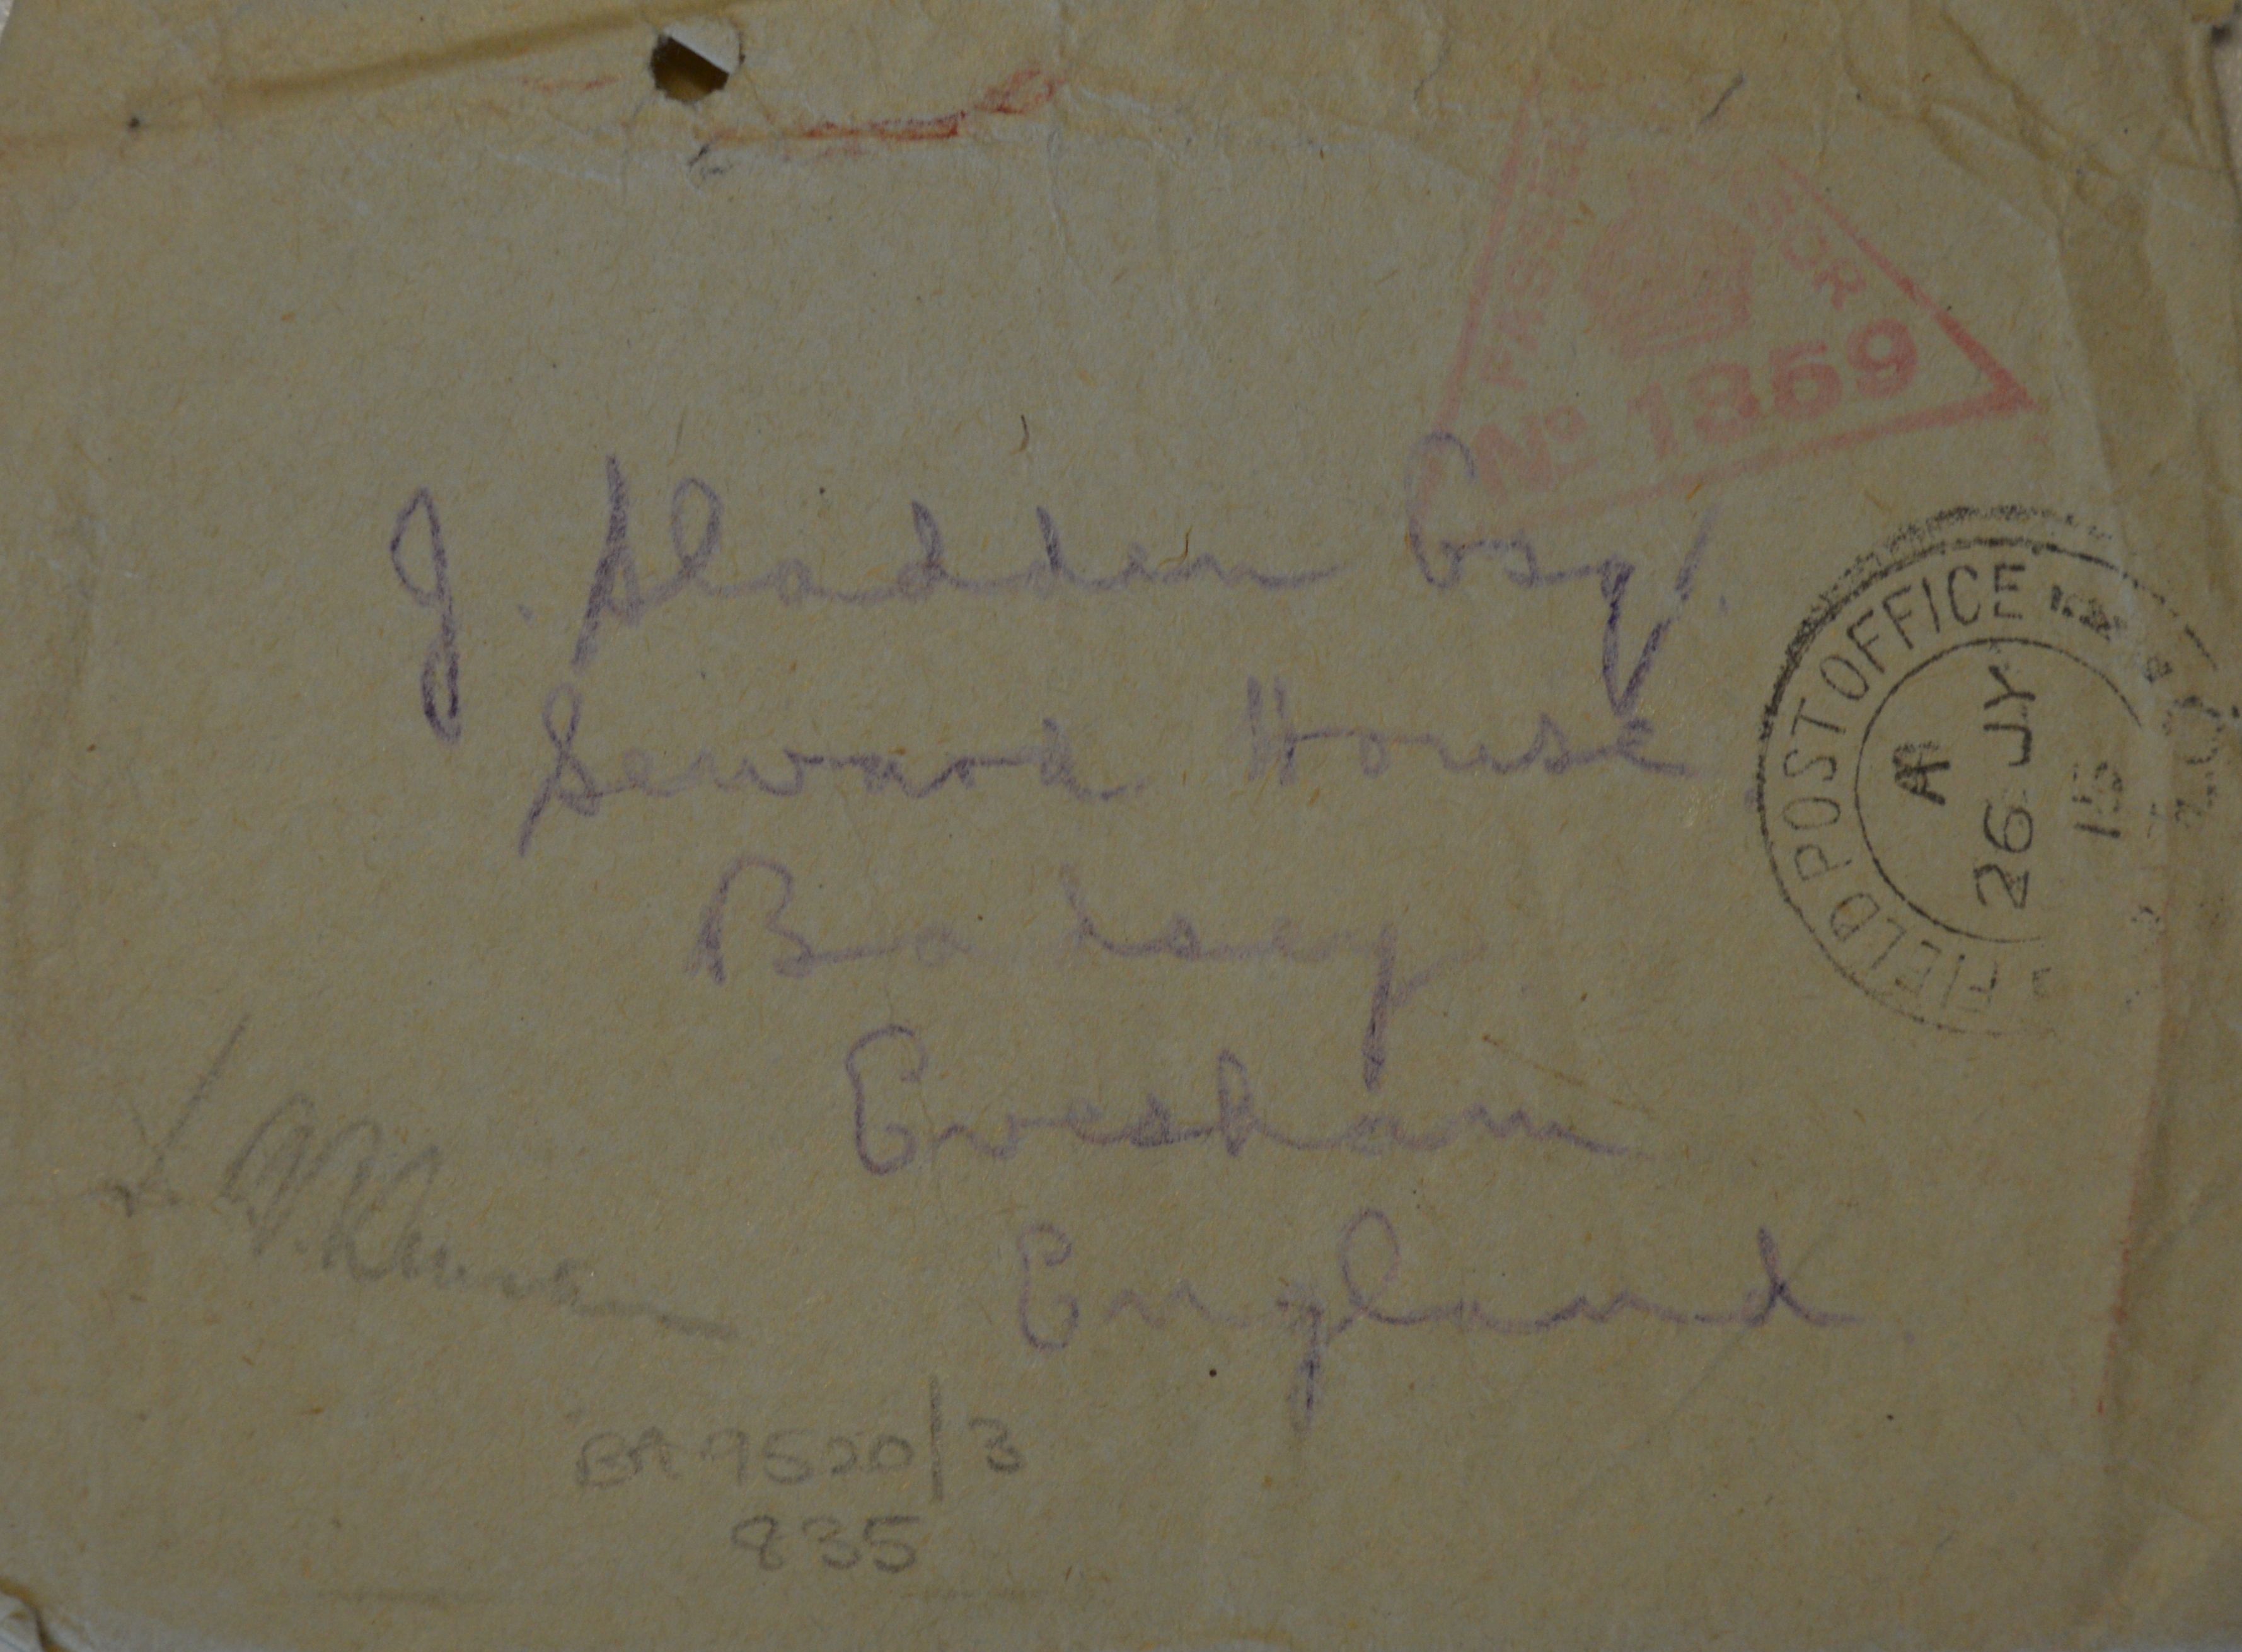 PASSED CENSOR
No 1869
J. Sladden Esq.
Seward House
Badsey
Evesham
England
FIELD POST OFFICE
A
26 JY
15
BA 9520/3
835